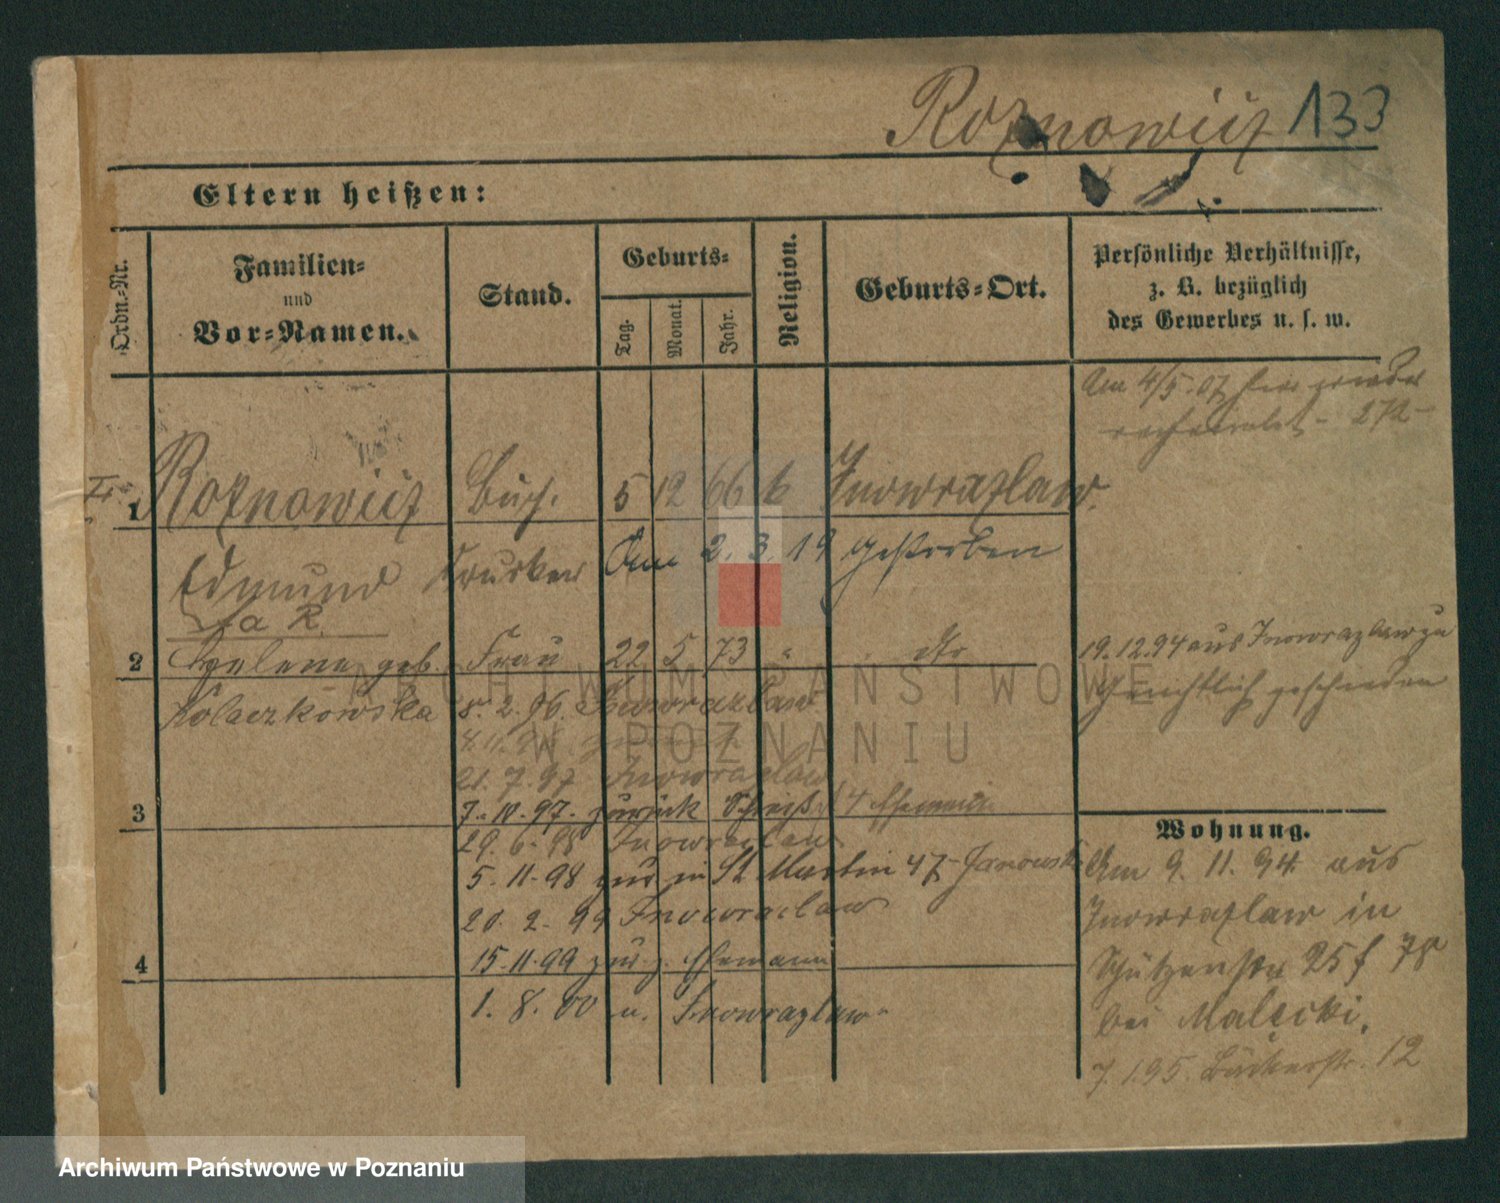 Roznowicz 133
Eltern heißen:
Ordn.-Nr.
Familien-
und
Vor-Namen.
Stand.
Geburts-
Tag.
Monat.
Jahr.
Religion.
Geburts-Ort.
Persönliche Verhältnisse,
z. B. bezüglich
des Gewerbes u. s. w.
Am 4/5. 07 hier wieder
verheiratet - 272 -
I. 1 Roznowicz Buch. 5 12 66 k Inowrazlaw.
Edmund Drucker Am 2. 3. 19 gestorben
fa R.
2 Helene geb. Frau 22 5 73 " dto
Kolaczkowska 8. 2. 96. Inowrazlaw
19. 12. 94 aus Inowrazlaw zu
Gerichtlich geschieden
21. 7. 97 Inowrazlaw
3 7. 10. 97. zurück 4 Ehemann
29. 6. 98 Inowrazlaw
5. 11. 98 zur. in St Martin 47 Janowski
20. 2. 99 Inowraclaw
4 15. 11. 99 zur. z. Ehemann
1. 8. 00 n. Inowrazlaw
Wohnung.
Am 9. 11. 94. aus
Inowrazlaw in
Schützenstr 25 f 78
bei Malecki.
7. 1. 95. Bäckerstr. 12
ARCHIWUM PAŃSTWOWE
W POZNANIU
Archiwum Państwowe w Poznaniu